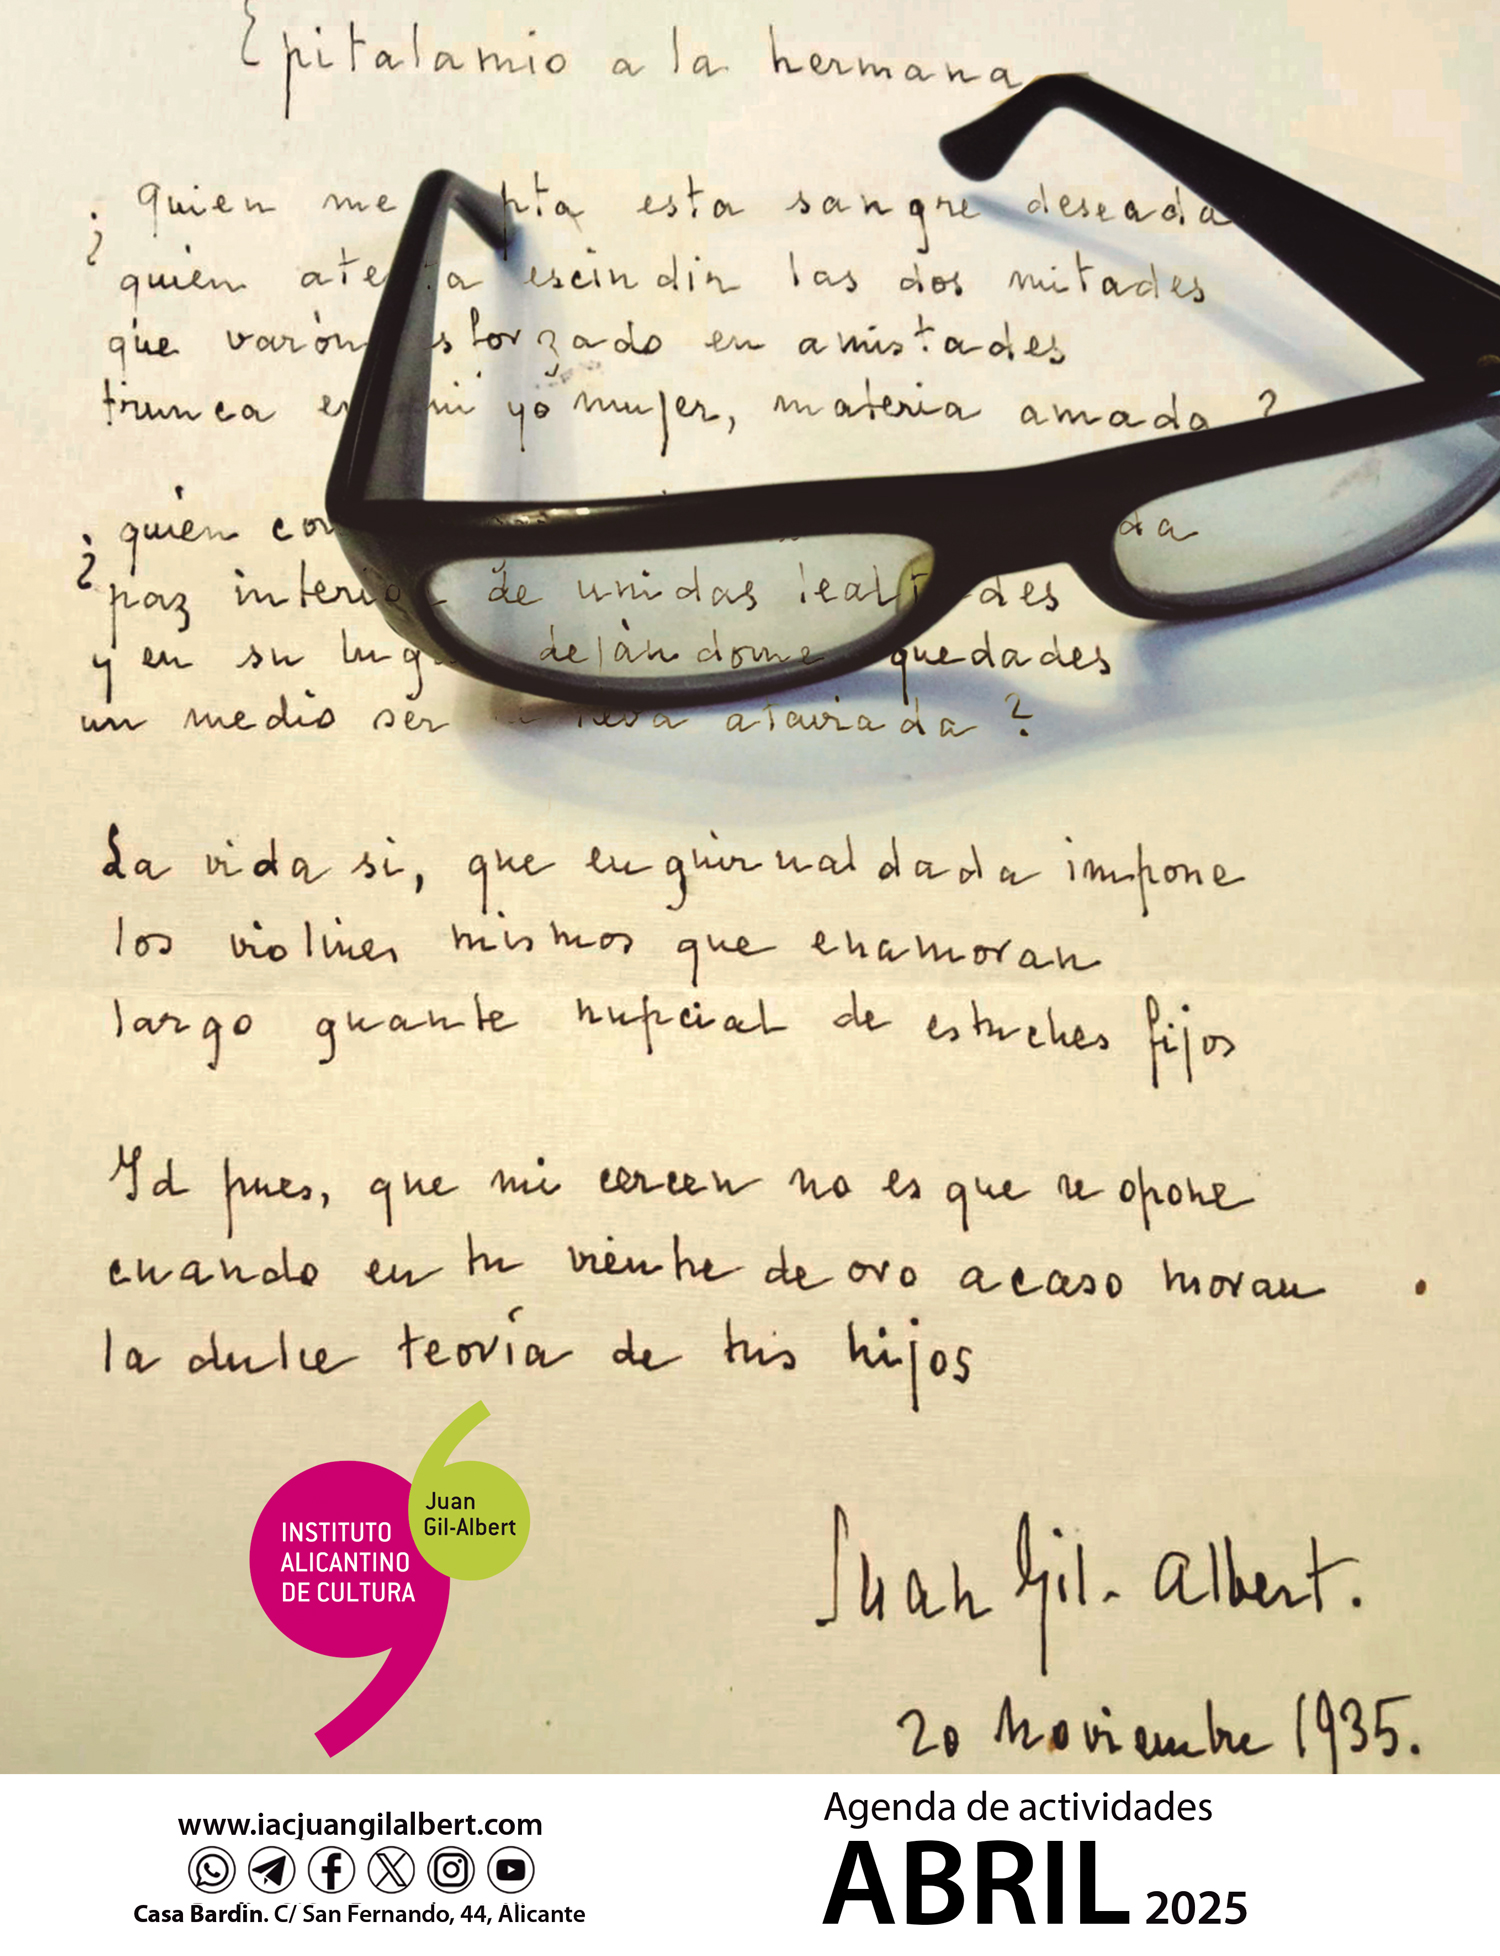 Epitalamio a la hermana
¿ quien me pta esta sangre deseada
quién ate a escindir las dos mitades
que varón sforzado en amistades
trunca en mi yo mujer, materia amada ?
¿ quién con da
paz interior de unidas lealtades
y en su lug dejándome quedades
un medio ser lleva ataviada ?
La vida si, que enguirnaldada impone
los violines mismos que enamoran
largo guante nupcial de estuches fijos
Id pues, que mi cercen no es que se opone
cuando en tu vientre de oro acaso moran
la dulce teoría de tus hijos
Juan Gil-Albert
INSTITUTO
ALICANTINO
DE CULTURA
Juan Gil-Albert.
20 Noviembre 1935.
www.iacjuangilalbert.com
Casa Bardín. C/ San Fernando, 44, Alicante
Agenda de actividades
ABRIL 2025